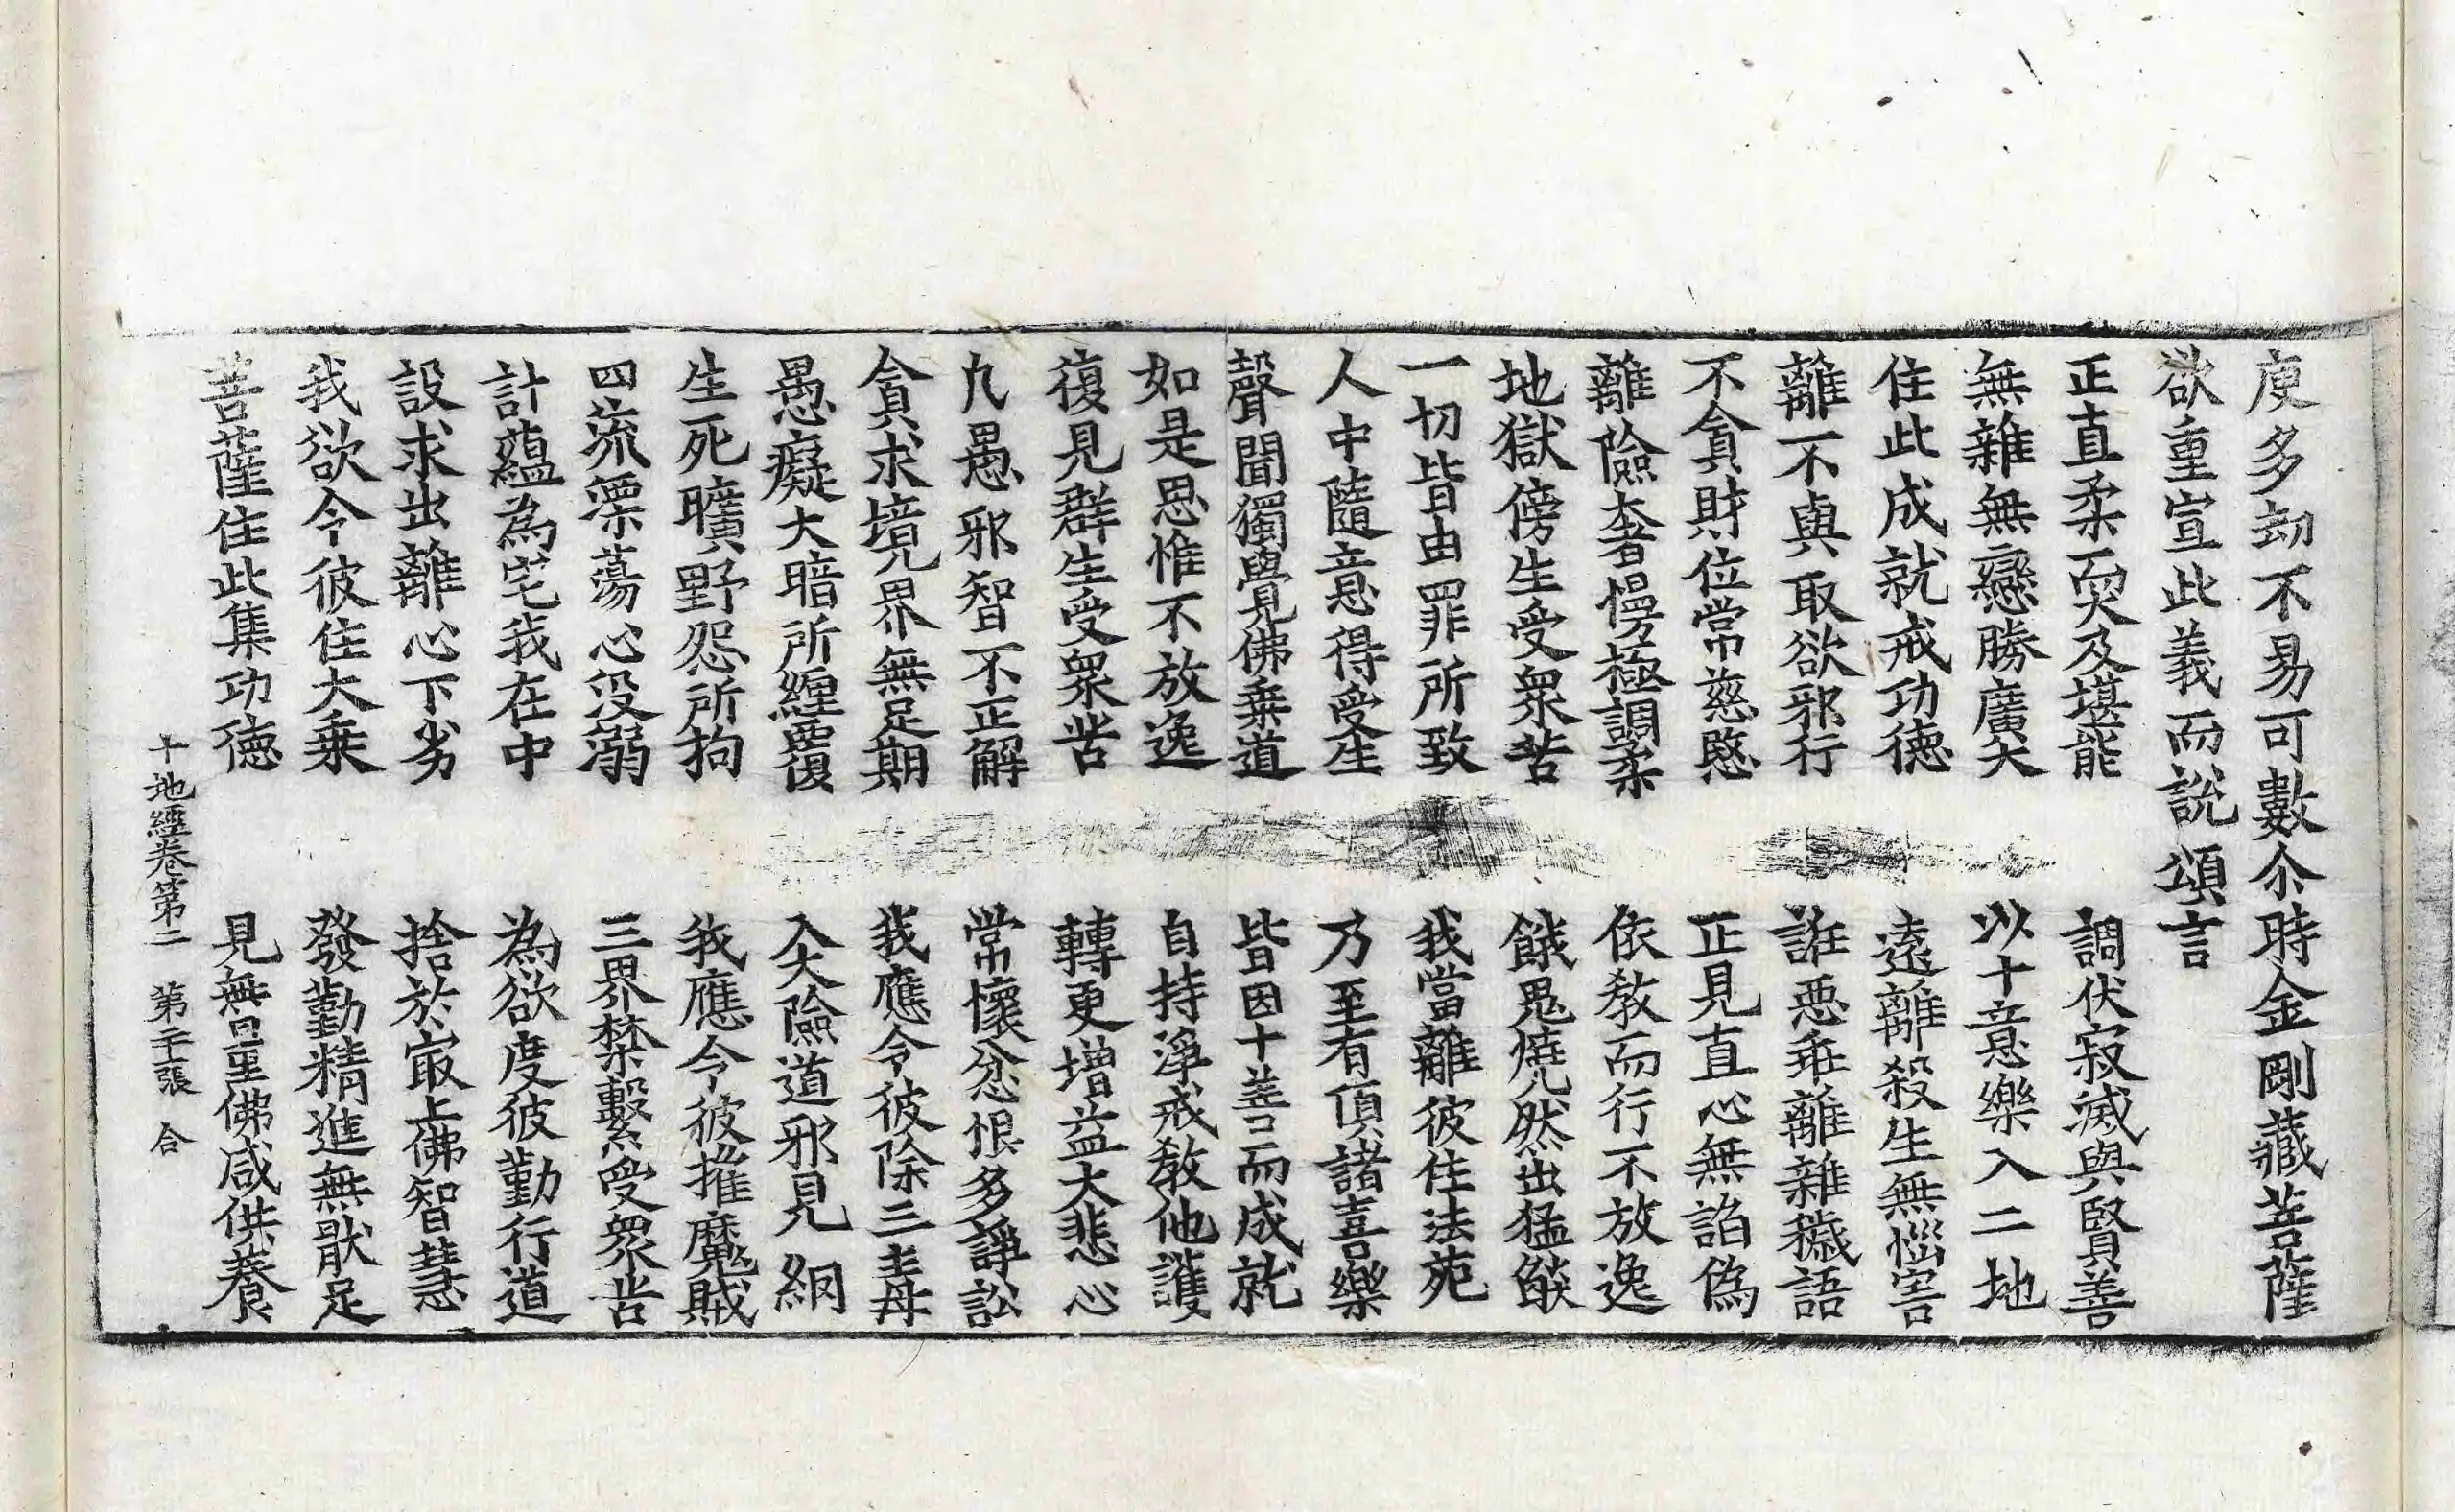 庾多劫不易可數尒時金剛藏菩薩
欲重宣此義而說頌言
正直柔耎及堪能　調伏寂滅與賢善
無雜無戀勝廣大　以十意樂入二地
住此成就戒功德　遠離殺生無惱害
離不與取欲邪行　誑惡乖離雜穢語
不貪財位常慈愍　正見直心無諂偽
離險奢慢極調柔　依教而行不放逸
地獄傍生受衆苦　餓鬼燒然出猛燄
一切皆由罪所致　我當離彼住法苑
人中隨意得受生　乃至有頂諸喜樂
聲聞獨覺佛乗道　皆因十善而成就
如是思惟不放逸　自持淨戒教他護
復見群生受衆苦　轉更增益大悲心
凡愚邪智不正解　常懷忿恨多諍訟
貪求境界無足期　我應令彼除三毒
愚癡大暗所纏覆　入大險道邪見網
生死曠野怨所拘　我應令彼摧魔賊
四流漂蕩心没溺　三界禁繫受衆苦
計蘊為宅我在中　為欲度彼勤行道
設求出離心下劣　捨於㝡上佛智慧
我欲令彼住大乗　發勤精進無猒足
菩薩住此集功德　見無量佛咸供養
十地經卷第二　第二十張　合